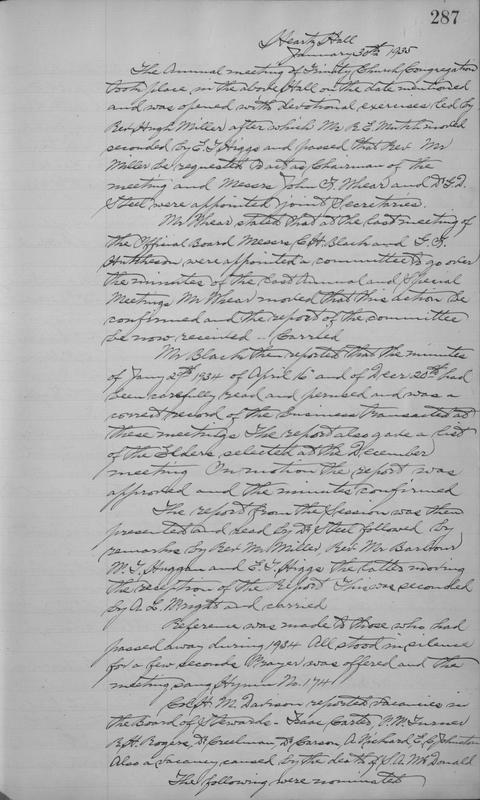 287
Heartz Hall
January 30th 1935
The Annual meeting of Trinity Church Congregation
took place in the above Hall on the date mentioned
and was opened with devotional exercises led by
Rev Hugh Miller after which Mr R E Mutch moved
seconded by E. T. Higgs and passed that Rev Mr
Miller be requested to act as Chairman of the
meeting and Messrs John F. Whear and Dr
Steel were appointed joint Secretaries.
Mr Whear stated that at the last meeting of
the Official Board Messrs C. H. Black and
Hutcheson were appointed a committee to go over
the minutes of the last Annual and Special
Meetings Mr Whear moved that this action be
confirmed and the report of the committee
be now received - Carried
Mr Black then reported that the minutes
of Jany 2th 1934 of April 16 and of Decr 20th had
been carefully read and perused and was a
correct record of the business transacted at
these meetings The report also gave a list
of the Elders selected at the December
meeting On motion the report was
approved and the minutes confirmed
The report from the Session was then
presented and read by Dr Steel followed by
remarks by Rev Mr Miller, Rev Mr Barbour
Huggan and E. T. Higgs the latter moving
the reception of the Report This was seconded
by A. E. Wright and carried
Reference was made to those who had
passed away during 1934 All stood in silence
for a few seconds Prayer was offered and the
meeting sang Hymn No. 174
Col H. M. Davison reported vacancies in
the Board of Stewards - Isaac Carter, Turner
R. H. Rogers, Dr Creelman, Dr Carson, A Richard, E. C Johnston
Also a vacancy caused by the death of S. A. McDonald
The following were nominated